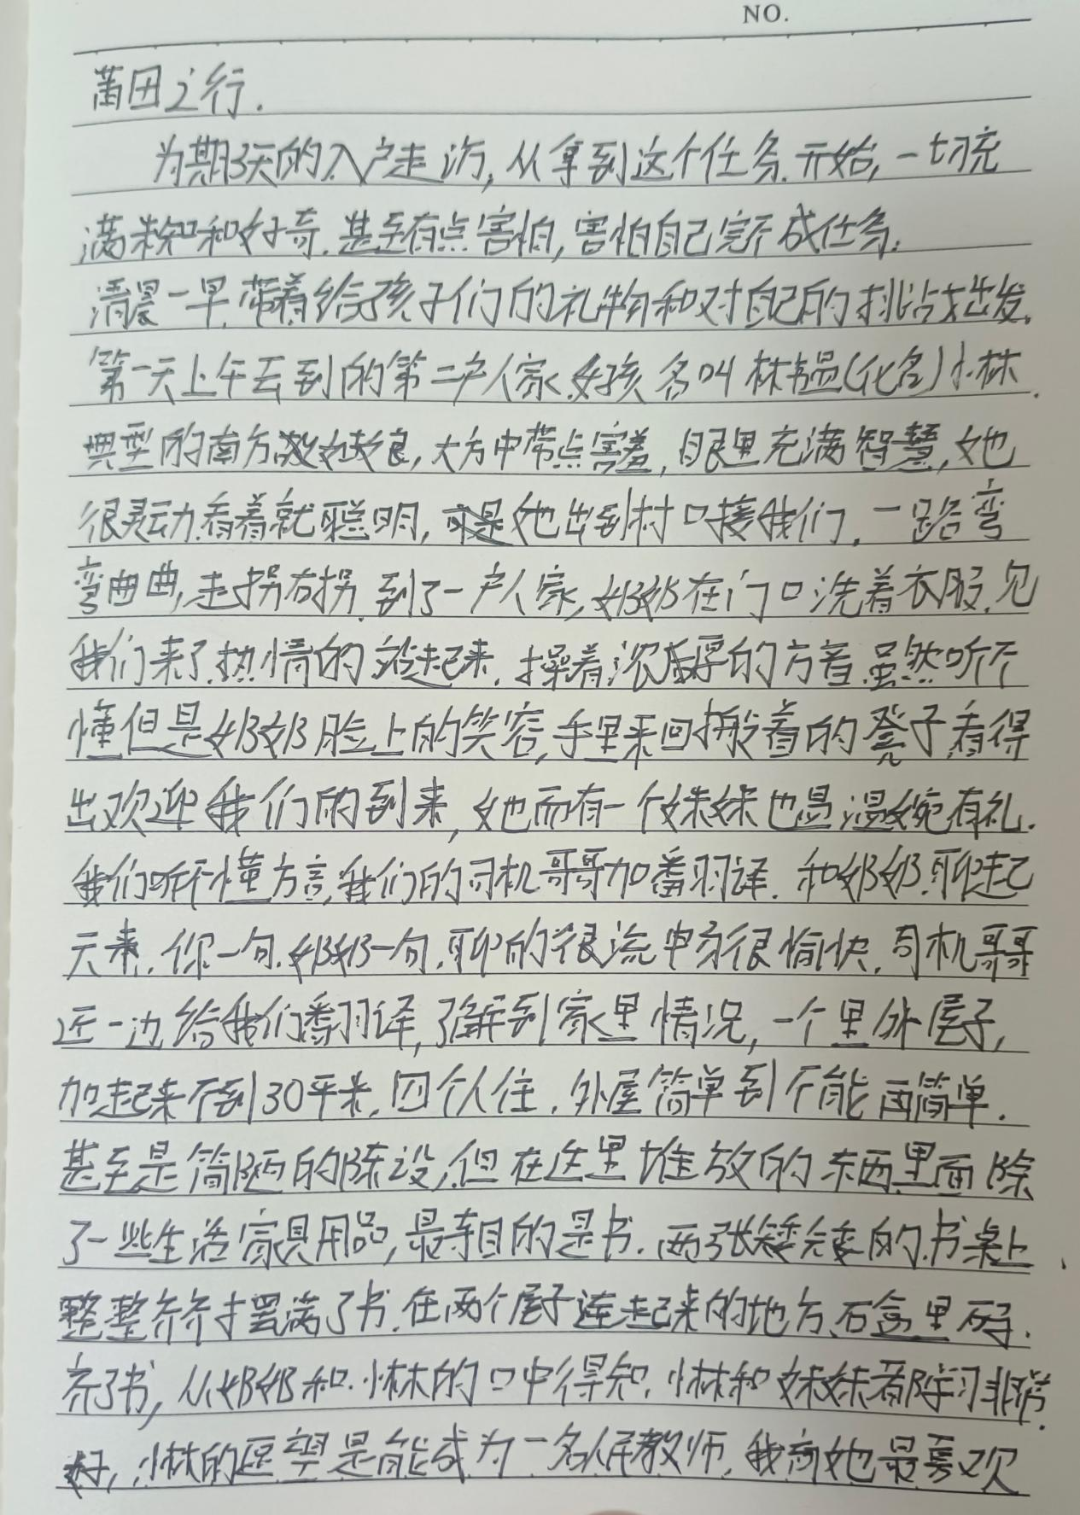 NO.
莆田之行.
为期3天的入户走访,从拿到这个任务.开始,一切充
满未知和好奇.甚至有点害怕,害怕自己完不成任务.
清晨一早.带着给孩子们的礼物和对自己的挑战出发.
第一天上午去到的第二户人家.女孩名叫林韫(化名)小林.
典型的南方姑娘,大方中带点害羞,眼里充满智慧,她
很灵动.看着就聪明,她出到村口接我们.一路弯
弯曲曲,走拐右拐.到了一户人家,奶奶在门口洗着衣服.见
我们来了.热情的站起来.操着浓厚的方音.虽然听不
懂但是奶奶脸上的笑容,手里来回搬着的凳子,看得
出欢迎我们的到来,她而有一个妹妹也是温婉有礼.
我们听不懂方言,我们的司机哥哥加番羽译.和奶奶聊起
天来.你一句.奶奶一句.聊的很流申为很愉快.司机哥哥
近一边给我们番羽译,了解到家里情况,一个里外屋子,
加起来不到30平米.四个人住.外屋简单到不能再简单.
甚至是简陋的陈设.但在这里堆放的东西里面除
了一些生活家具用品,最夺目的是书.两张矮矮的.书桌上
整整齐齐才罢满了书.在两个屋子连起来的地方.石盒里码.
齐了书,从奶奶和.小林的口中得知.小林和妹妹都学习非常
好,小林的愿望是能成为一名人民教师.我问她最喜欢